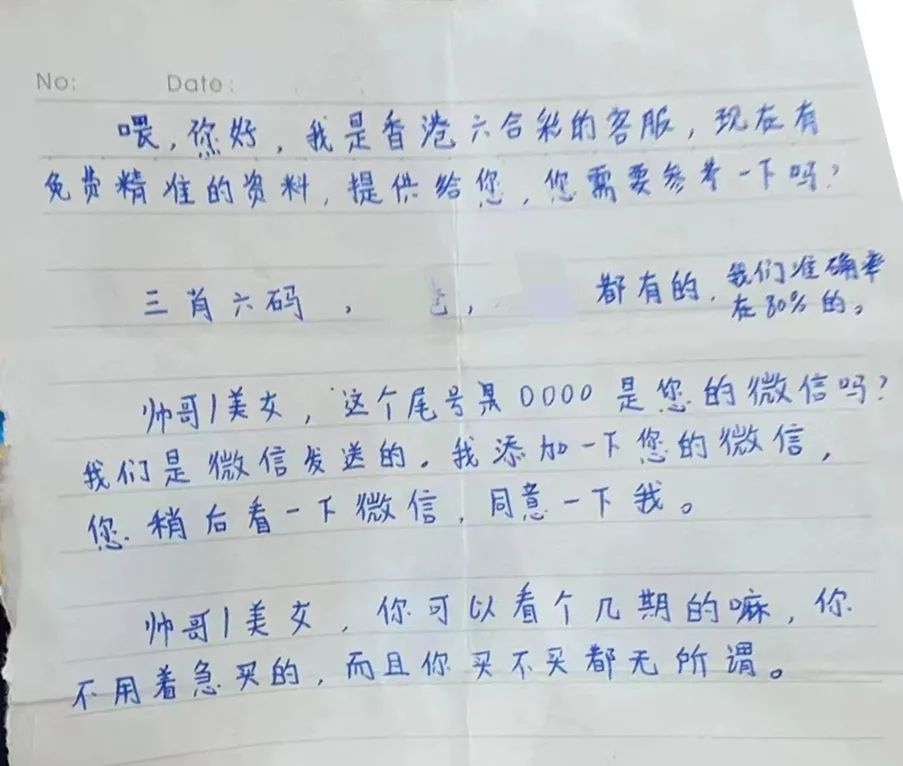 No:    Date:
喂,你好,我是香港六合彩的客服,现在有
免费精准的资料,提供给您,您需要参考一下吗?
三肖六码, , 都有的.我们准确率
在80%的。
帅哥/美女,这个尾号是0000是您的微信吗?
我们是微信发送的.我添加一下您的微信,
您.稍后看一下微信,同意一下我。
帅哥/美女,你可以看个几期的嘛,你
不用着急买的,而且你买不买都无所谓。